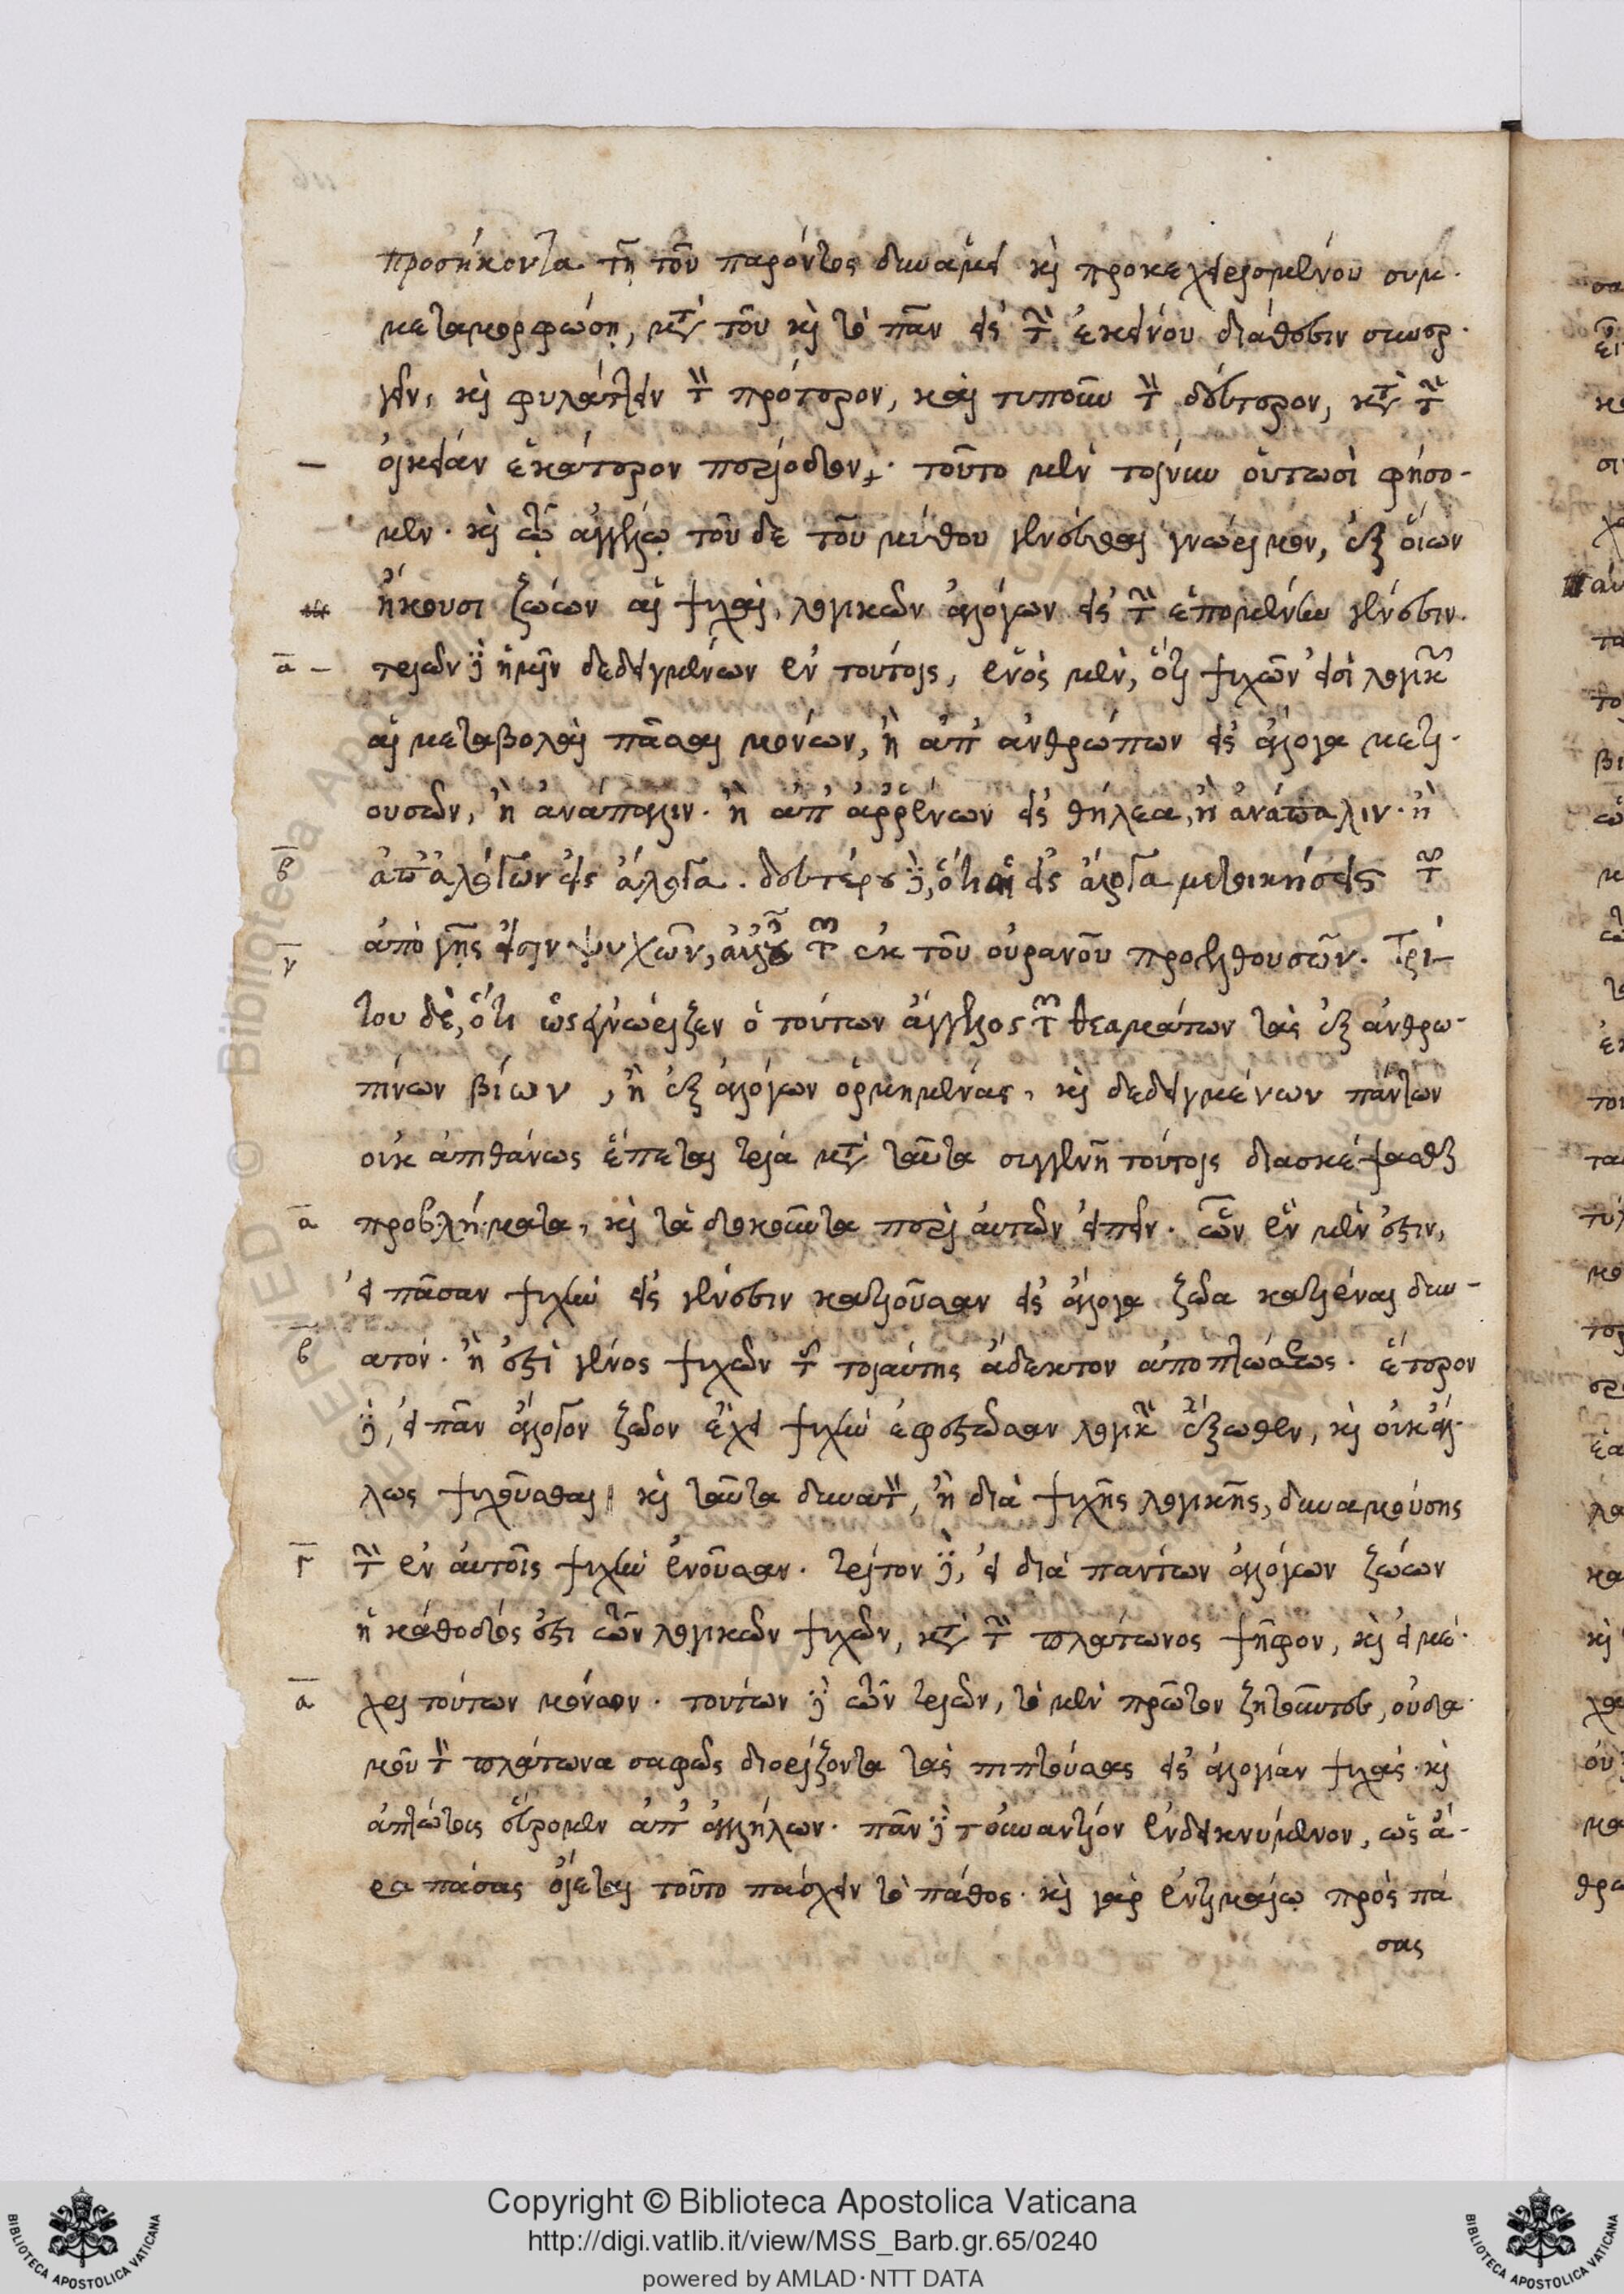 προσήκοντα τῇ τοῦ παρόντος δυνάμει καὶ προκεχειρισμένου συμ-
μεταμορφώσῃ, μετὰ τοῦ καὶ τὸ πᾶν εἰς τὴν ἐκείνου διάθεσιν συνερ-
γεῖν, καὶ φυλάττειν τὸν πρότερον, καὶ τυποῦν τὸν δεύτερον, κατὰ τὴν
οἰκείαν ἑκάτερον περίοδον. τοῦτο μὲν τοίνυν οὑτωσὶ φήσο-
μεν. καὶ τῷ ἀγγέλῳ τοῦδε τοῦ μύθου γενέσθαι γνώριμον, ἐξ οἵων
ἥκουσι ζώων αἱ ψυχαὶ, λογικῶν ἀλόγων εἰς τὴν ἑπομένην γένεσιν.
α τριῶν δὲ ἡμῖν δεδειγμένων ἐν τούτοις, ἑνὸς μὲν, ὅτι ψυχῶν εἰσὶ λογικῶν
αἱ μεταβολαὶ πᾶσαι μόνων, ἢ ἀπ' ἀνθρώπων εἰς ἄλογα μετι-
ουσῶν, ἢ ἀνάπαλιν. ἢ ἀπ' ἀρρένων εἰς θήλεα, ἢ ἀνάπαλιν. ἢ
β ἀπ' ἀλόγων εἰς ἄλογα. δευτέρου δὲ, ὅτι αἱ εἰς ἄλογα μετοικήσεις τῶν
γ ἀπὸ γῆς εἰσιν ψυχῶν, ἀλλ' οὐ τῶν ἐκ τοῦ οὐρανοῦ προελθουσῶν. Τρί-
του δὲ, ὅτι ὡς ἐγνώριζεν ὁ τούτων ἄγγελος τῶν θεαμάτων τὰς ἐξ ἀνθρω-
πίνων βίων, ἢ ἐξ ἀλόγων ὁρμημένας, καὶ δεδειγμένων πάντων
οὐκ ἀπιθάνως ἕπεται τρία μετὰ ταῦτα συγγενῆ τούτοις διασκέψασθαι
α προβλήματα, καὶ τὰ δοκοῦντα περὶ αὐτῶν εἰπεῖν. ὧν ἓν μὲν ἐστιν,
εἰ πᾶσαν ψυχὴν εἰς γένεσιν κατιοῦσαν εἰς ἄλογα ζῶα κατιέναι δυν-
β ατόν. ἢ ἐστὶ γένος ψυχῶν τῆς τοιαύτης ἄδεκτον ἀποπτώσεως. ἕτερον
δὲ, εἰ πᾶν ἄλογον ζῶον ἔχει ψυχὴν ἐφεστῶσαν λογικὴν ἔξωθεν, καὶ οὐκ ἄλ-
λως ψυχοῦσθαι καὶ ταῦτα δυνατὸν, ἢ διὰ ψυχῆς λογικῆς, δυναμούσης
γ τὴν ἐν αὐτοῖς ψυχὴν ἐνοῦσαν. τρίτον δὲ, εἰ διὰ πάντων ἀλόγων ζώων
ἡ κάθοδός ἐστι τῶν λογικῶν ψυχῶν, κατὰ τὴν πλάτωνος ψῆφον, καὶ εἰ μέ-
α χρι τούτων μόνον. τούτων δὲ τῶν τριῶν, τὸ μὲν πρῶτον ζητοῦντες, οὐδα-
μοῦ τὸν πλάτωνα σαφῶς διορίζοντα τὰς πιπτούσας εἰς ἀλογίαν ψυχάς. καὶ
ἀπτώτους εὕρομεν ἀπ' ἀλλήλων. πᾶν δὲ τοὐναντίον ἐνδεικνύμενον, ὡς ἄ-
ρα πάσας οἴεται τοῦτο πάσχειν τὸ πάθος. καὶ γὰρ ἐν τιμαίῳ πρὸς πά
σας
Copyright © Biblioteca Apostolica Vaticana
http://digi.vatlib.it/view/MSS_Barb.gr.65/0240
powered by AMLAD · NTT DATA